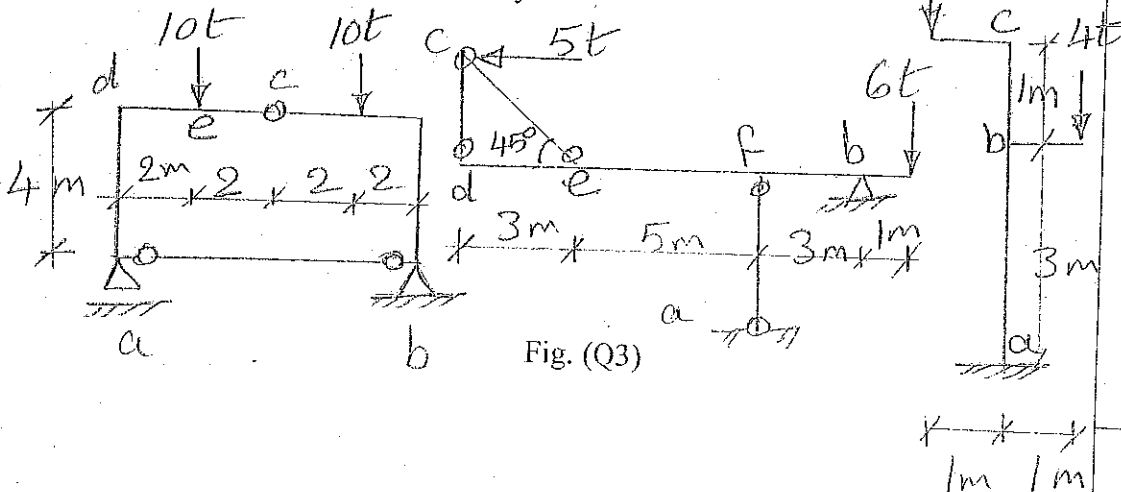 10t 10t
d e c
4m
2m 2 2 2
a b
c 5t
45°
d e f b
6t
3m 5m 3m 1m
a
Fig. (Q3)
c 4t
1m
b
3m
a
1m 1m